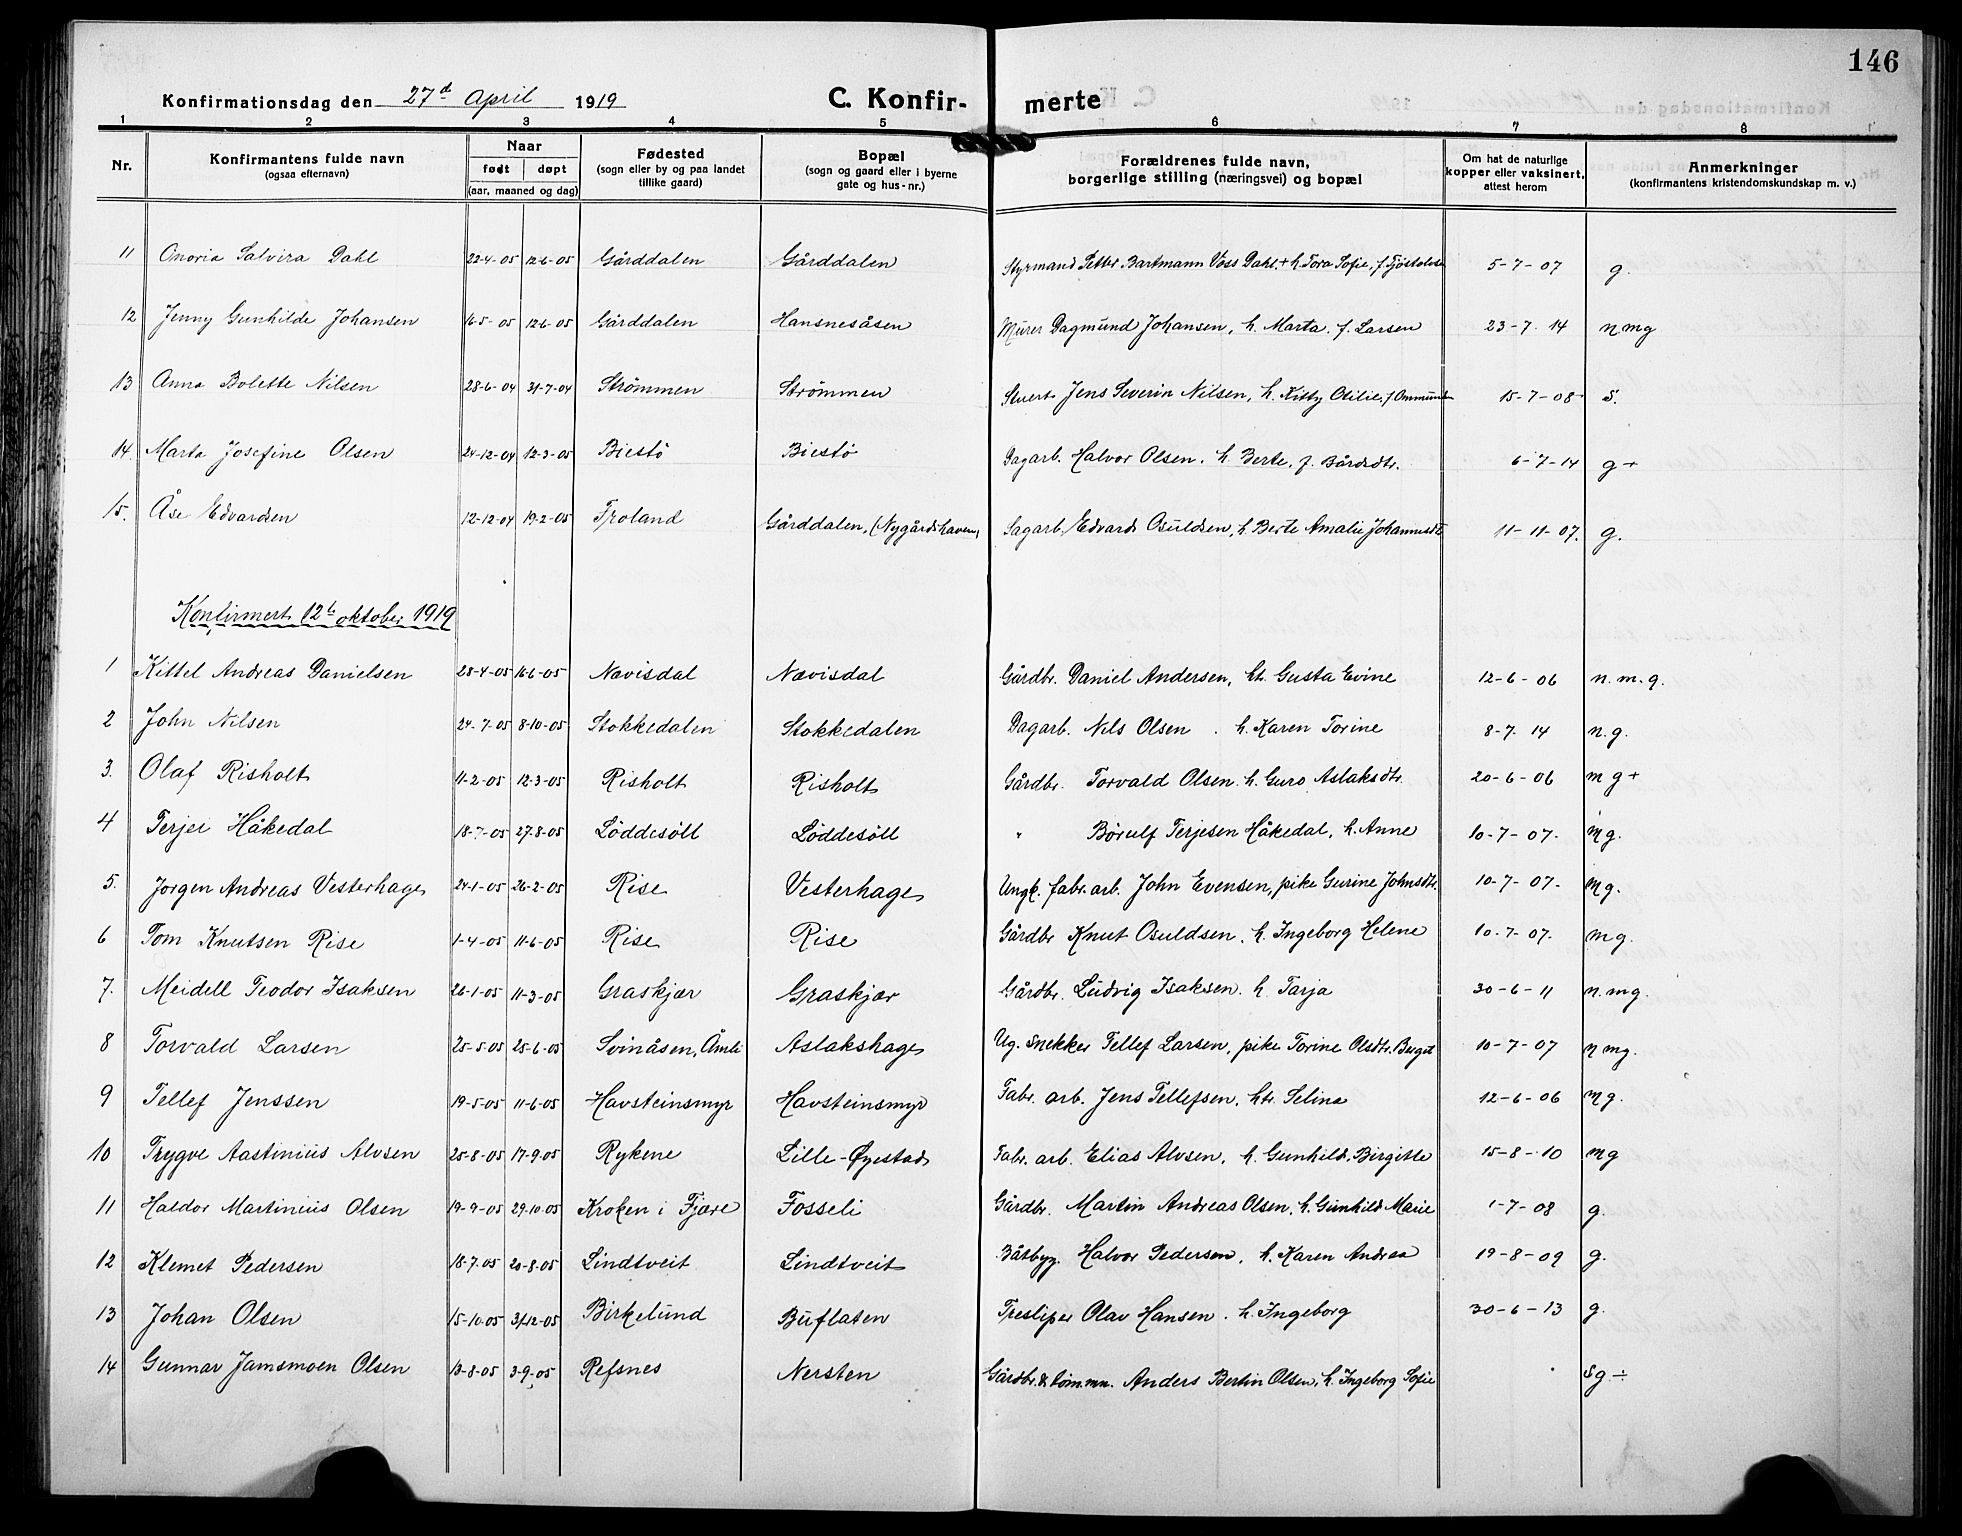 146
Konfirmationsdag den 27d April 1919 C. Konfir- merte
1 2 3 4 5 6 7 8
Nr. Konfirmantens fulde navn (ogsaa efternavn) Naar født døpt (aar, maaned og dag) Fødested (sogn eller by og paa landet tillike gaard) Bopæl (sogn og gaard eller i byerne gate og hus-nr.) Forældrenes fulde navn, borgerlige stilling (næringsvei) og bopæl Om hat de naturlige kopper eller vaksinert, attest herom Anmerkninger (konfirmantens kristendomskundskap m. v.)
11 Onoria Salvira Dahl 22-4-05 12-6-05 Gårddalen Gårddalen Styrmand Petter Bartmann Voss Dahl + h. Tora Sofie, f. 5-7-07 g.
12 Jenny Gunhilde Johansen 16-5-05 12-6-05 Gårddalen Hansnesåsen Murer Dagmund Johansen, h. Marta. f. Larsen 23-7-14 n.mg
13 Anna Bolette Nilsen 28-6-04 31-7-04 Strömmen Strömmen Stuert Jens Severin Nilsen, h. Kitty Otilie, f. 15-7-08 s.
14. Marta Josefine Olsen 24-12-04 12-3-05 Biestö Biestö Dagarb. Halvor Olsen. h. Berte, f. Bårdsdtr. 6-7-14 g+
15. Åse Edvardsen 12-12-04 19-2-05 Froland Gårddalen, (Nygårdshaven) Sagarb. Edvard Osuldsen, h. Berte Amalie Johannesdt 11-11-07. g.
Konfirmert 12te oktober 1919
1 Kittel Andreas Danielsen 28-4-05 16-6-05 Nævisdal Nævisdal Gårdbr. Daniel Andersen, h. Gusta Evine 12-6-06 n.m.g.
2 John Nilsen 24-7-05 8-10-05 Stokkedalen Stokkedalen Dagarb. Nils Olsen. h. Karen Torine 8-7-14 n.g.
3. Olaf Risholt 11-2-05 12-3-05 Risholt Risholt Gårdbr. Torvald Olsen. h. Guro Aslaksdtr. 20-6-06 mg+
4 Terjei Håkedal 18-7-05 27-8-05 Löddesöll Löddesöll " Børulf Terjesen Håkedal, h. Anne 10-7-07- mg.
5. Jorgen Andreas Vesterhage 24-1-05 26-2-05 Rise Vesterhage Ungk. fabr. arb. John Evensen, pike Gurine Johnsdtr. 10-7-07- mg.
6 Tom Knutsen Rise 1-4-05 11-6-05 Rise Rise Gårdbr Knut Osuldsen, h. Ingeborg Helene 10-7-07. mg.
7. Meidell Teodor Isaksen 26-1-05 11-3-05 Graskjær Graskjær Gårdbr. Ludvig Isaksen. h. Tarja 30-6-11 n.mg.
8 Torvald Larsen 25-5-05 25-6-05 Svinåsen, Åmli Aslakshage Ug. Snekker Tellef Larsen, pike Torine Olsdtr. 10-7-07 n mg.
9 Tellef Jenssen 19-5-05 11-6-05 Havsteinsmyr Havsteinsmyr Fabr. arb. Jens Tellefsen, htr. Selina 12-6-06 mg.
10 Trygve Aastinius Alvsen 25-8-05 17-9-05 Rykene Lille-Øyestad Fabr. arb. Elias Alvsen, h. Gunhild Birgitte 15-8-10 mg
11 Haldor Martinius Olsen 19-9-05 29-10-05 Kroken i Fjære Fosseli Gårdbr. Martin Andreas Olsen, h. Gunhild Marie 1-7-08 g.
12 Klemet Pedersen 18-7-05 20-8-05 Lindtveit Lindtveit Båtbyg. Halvor Pedersen, h. Karen Andrea 19-8-09 g.
13 Johan Olsen 15-10-05 31-12-05 Birkelund Buflaten Tresliper Olav Hansen. h. Ingeborg 30-6-13 g.
14 Gunnar Jamsmoen Olsen 13-8-05 3-9-05 Refsnes Nersten Gårdbr. & Anders Bertin Olsen, h. Ingeborg Sofie Sg ÷